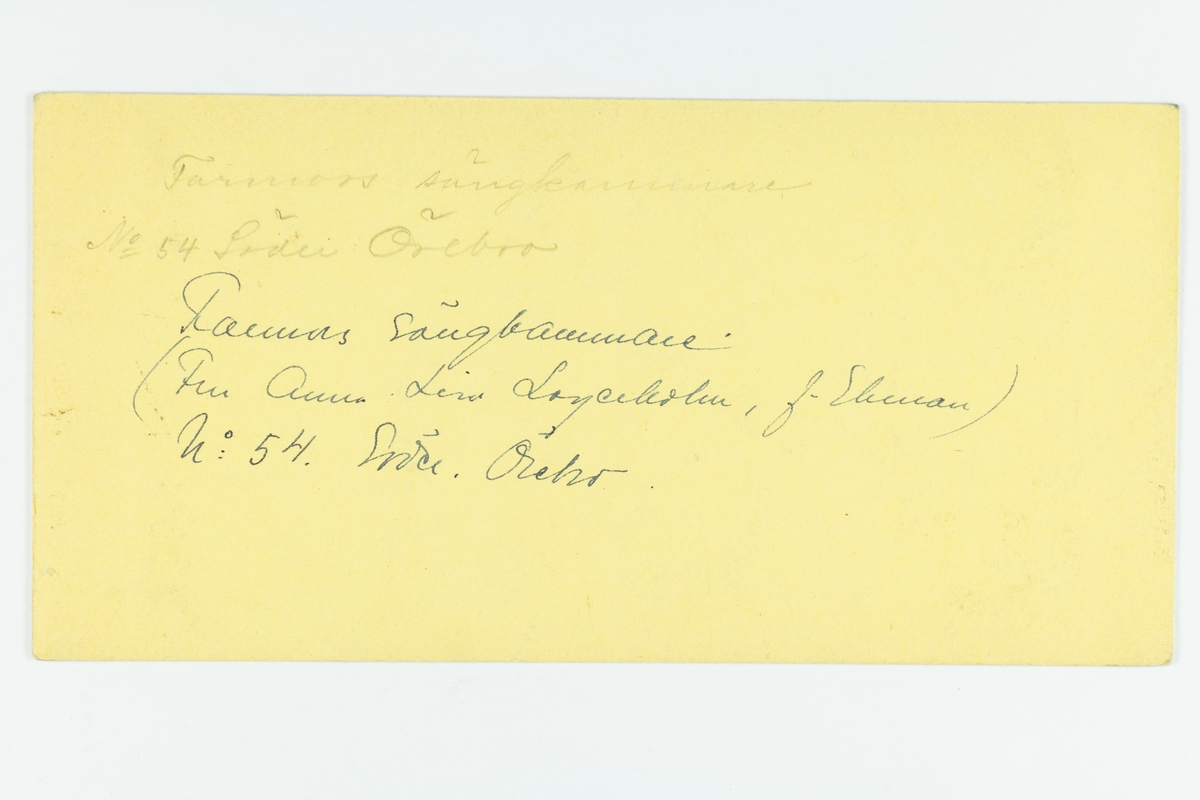 Farmors sängkammare
No 54 Söder Örebro
Farmors Sängkammare.
(Fru Anna Lisa Lagerholm, f. Ekman)
N: 54. Söder. Örebro.